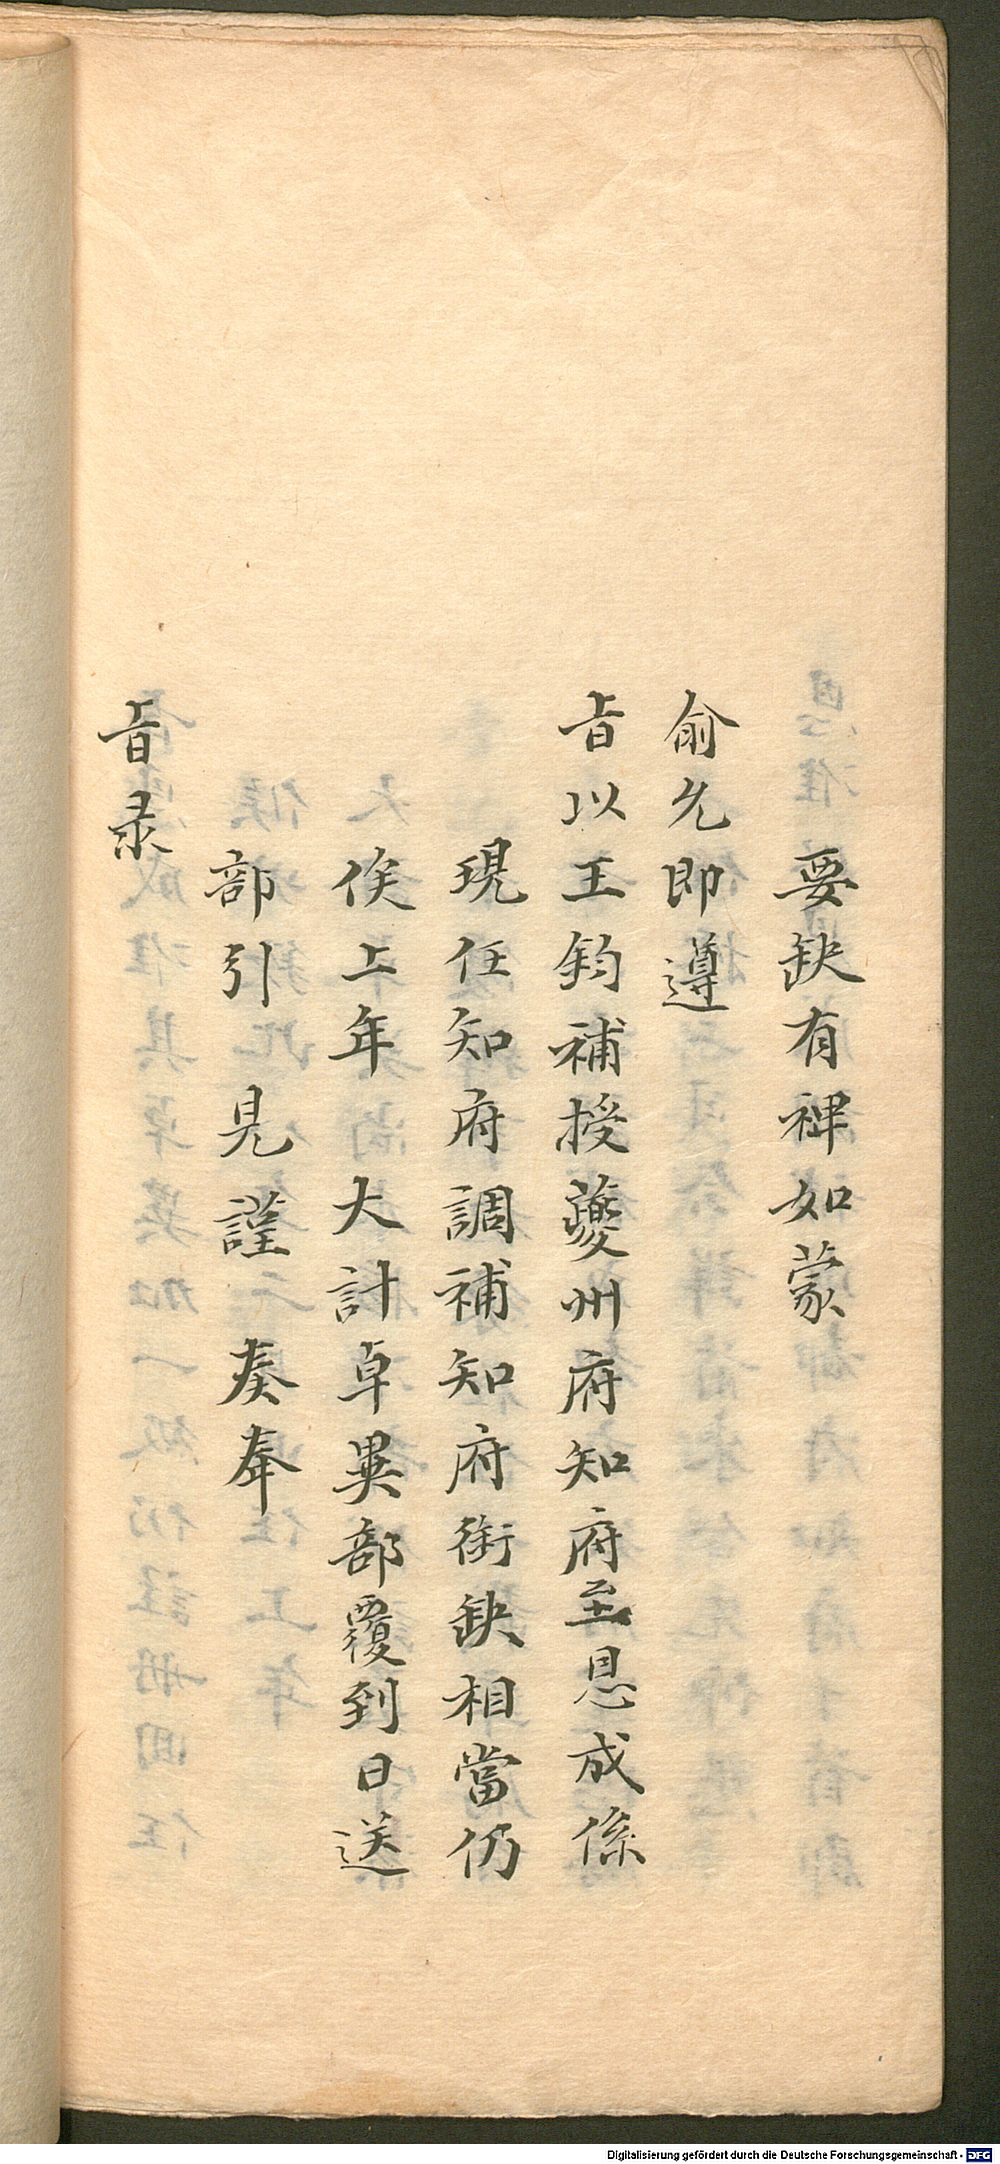 要缺有裨如蒙
俞允即遵
旨以王鈞補授夔州府知府至恩成係
現任知府調補知府銜缺相當仍
俟上年 大計卓異部覆到日送
部引 見謹 奏奉
旨录
Digitalisierung gefördert durch die Deutsche Forschungsgemeinschaft - DFG